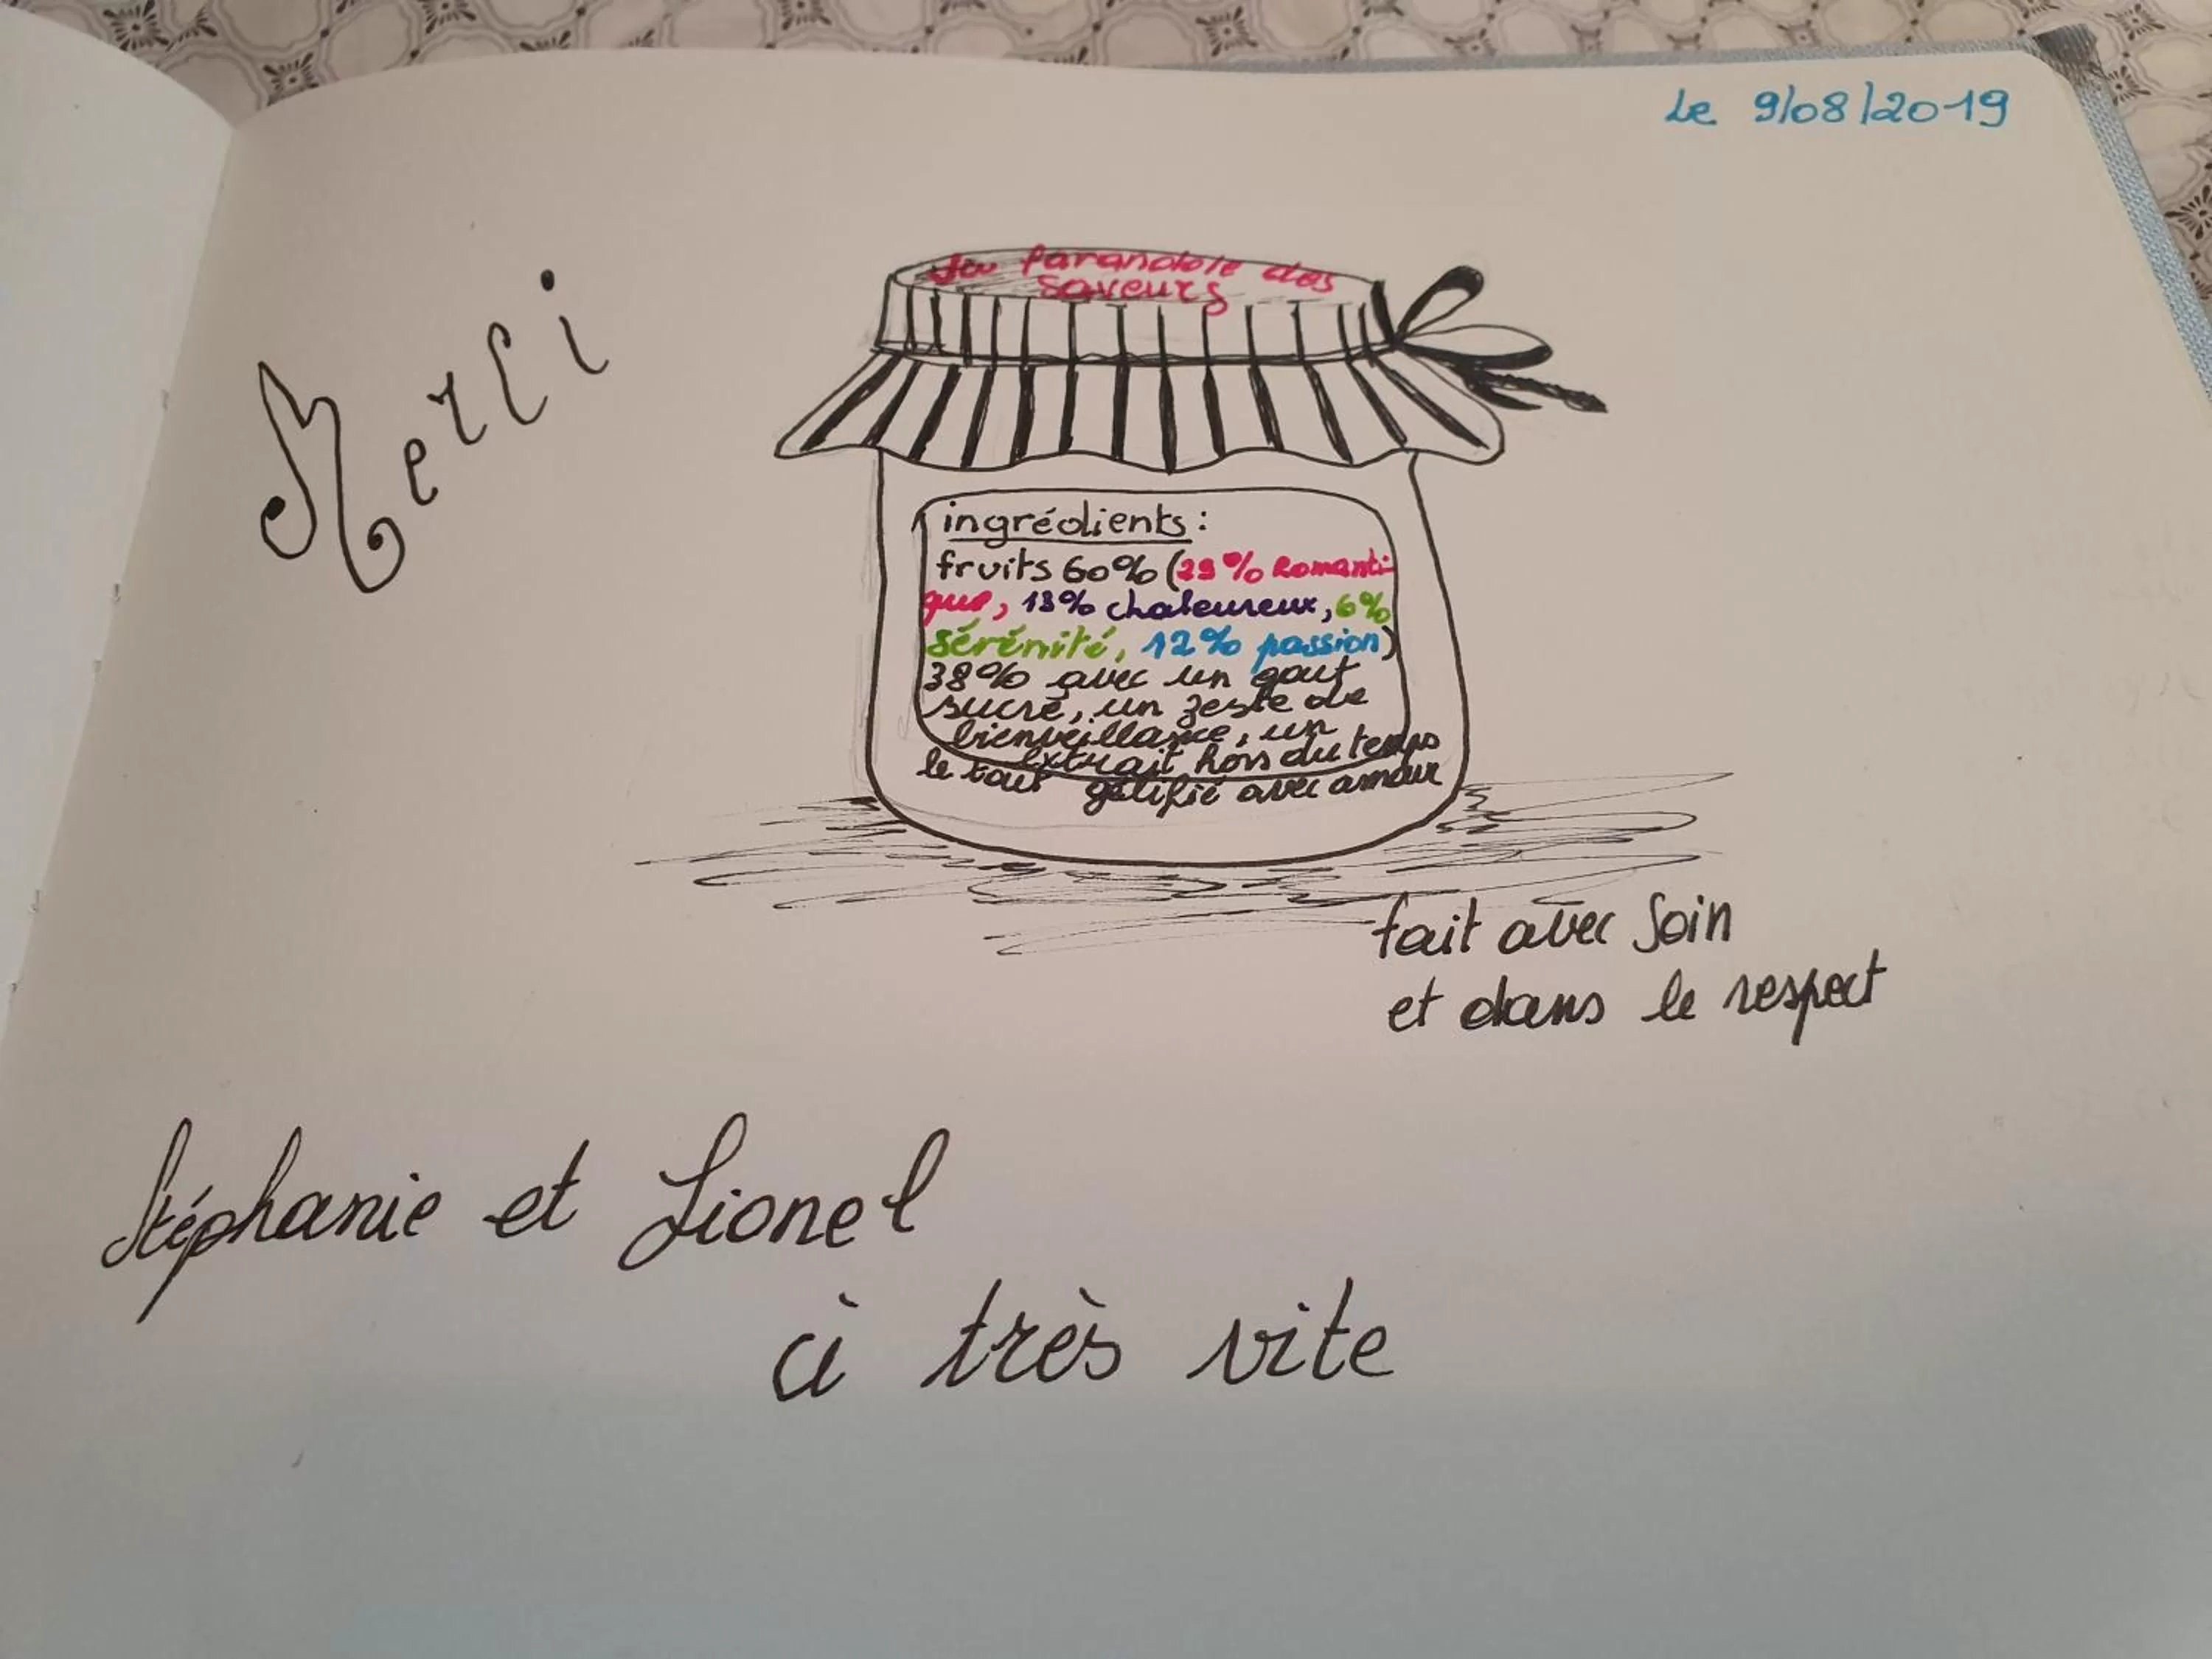 Le 9/08/2019
Merci
La farandole des
saveurs
ingrédients :
fruits 60% (29% Romanti-
que, 13% chaleureux, 6%
sérénité, 12% passion)
38% avec un gout
sucré, un zeste de
bienveillance, un
extrait hors du temps
le tout gélifié avec amour
fait avec soin
et dans le respect
Stéphanie et Lionel
à très vite